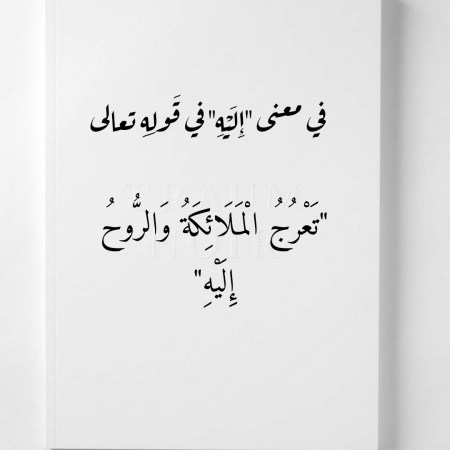 في معنى "إِلَيْهِ" في قَولِه تعالى
"تَعْرُجُ الْمَلَائِكَةُ وَالرُّوحُ
إِلَيْهِ"